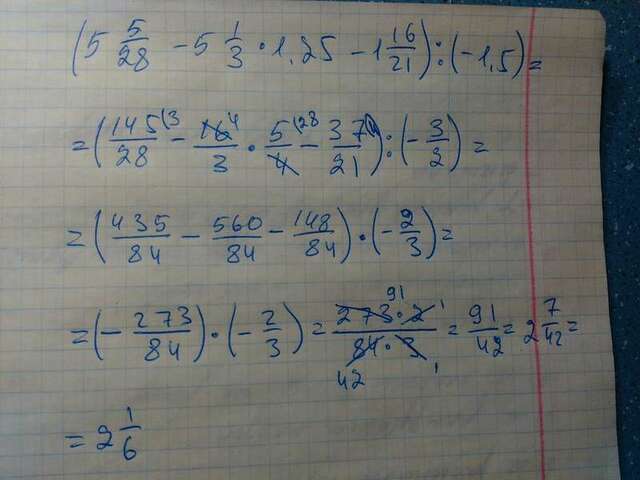 (5 5/28 - 5 1/3 · 1,25 - 1 16/21) : (-1,5) =
= (145/28 (3 - 16/3 4 · 5/4 (28 - 37/21 (4) : (-3/2) =
= (435/84 - 560/84 - 148/84) · (-2/3) =
= (-273/84) · (-2/3) = 273·2/84·3 91 1 42 1 = 91/42 = 2 7/42 =
= 2 1/6